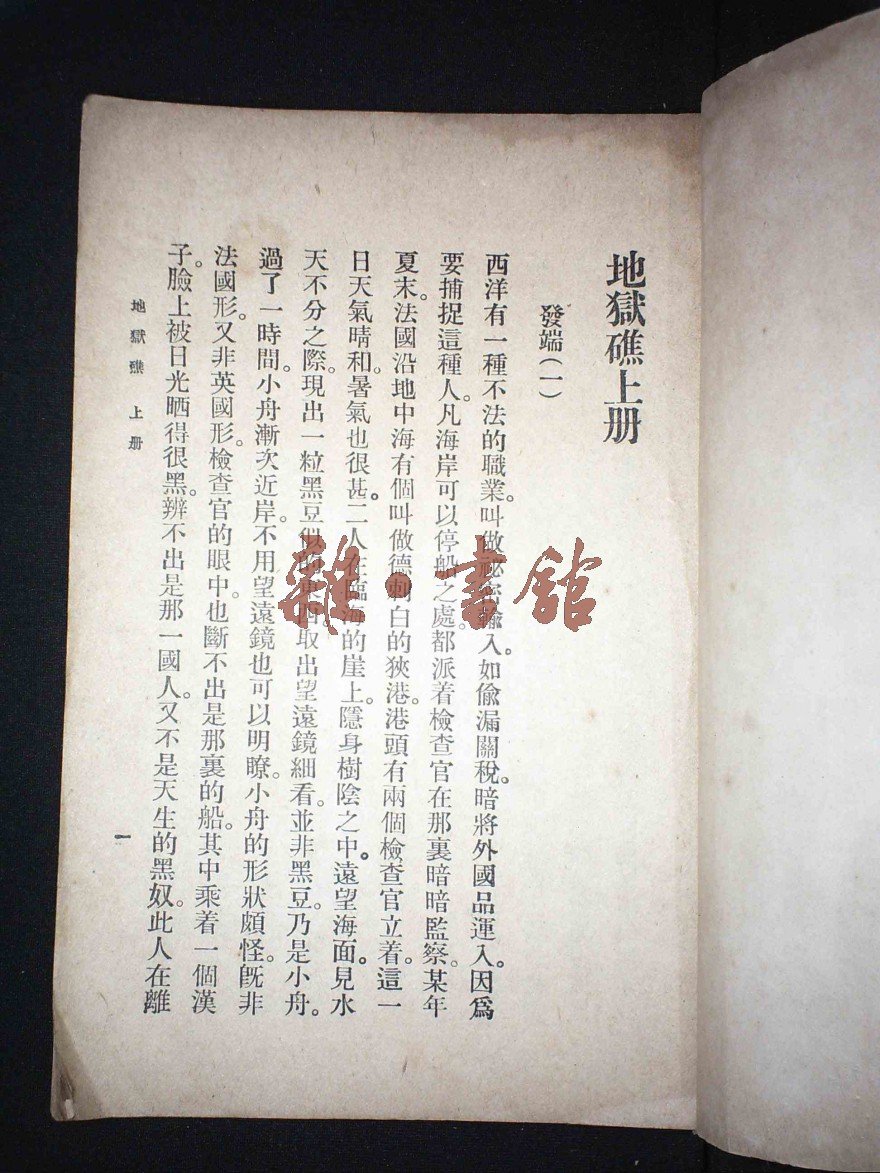 地獄礁上册
發端(一)
西洋有一種不法的職業。叫做祕密輸入。如偸漏關稅。暗將外國品運入。因爲
要捕捉這種人。凡海岸可以停船之處。都派着檢查官在那裏暗暗監察。某年
夏末。法國沿地中海有個叫做德刺白的狹港。港頭有兩個檢查官立着。這一
日天氣晴和。暑氣也很甚。二人在臨海的崖上。隱身樹陰之中。遠望海面。見水
天不分之際。現出一粒黑豆似的東西。取出望遠鏡細看。並非黑豆。乃是小舟。
過了一時間。小舟漸次近岸。不用望遠鏡也可以明瞭。小舟的形狀頗怪。旣非
法國形。又非英國形。檢查官的眼中。也斷不出是那裏的船。其中乘着一個漢
子。臉上被日光晒得很黑。辨不出是那一國人。又不是天生的黑奴。此人在離
地獄礁 上册
一
雜·書館